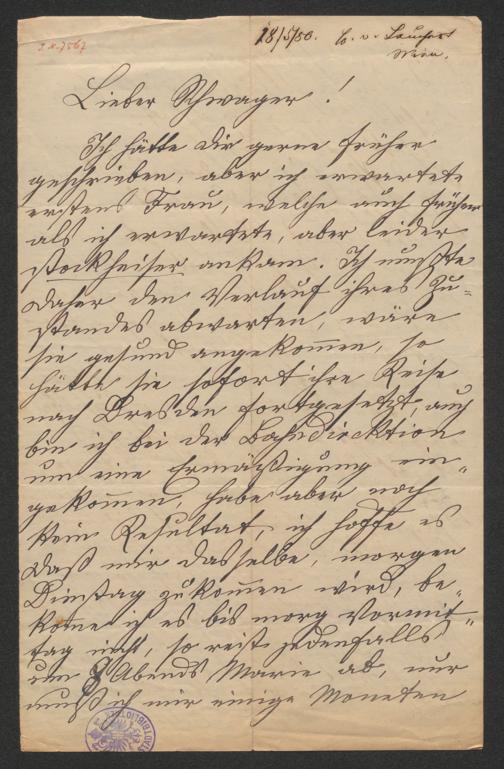 I.N. 7567
18/5/50.
Wien.
Lieber Schwager!
Ich hätte dir gerne früher
geschrieben, aber ich erwartete
erstens Frau, welche auch früher
als ich erwartete, aber leider
stockheiser ankam. Ich musste
daher den Verlauf ihres Zu-
standes abwarten, wäre
sie gesund angekommen, so
hätte sie sofort ihre Reise
nach Dresden fortgesetzt, auch
bin ich bei der Bahndirektion
um eine Ermäßigung ein-
gekommen, habe aber noch
kein Resultat, ich hoffe es
daß mir dasselbe, morgen
Dienstag zukommen wird, be-
komme ich es bis morg Vormit-
tag nicht, so reist jedenfalls
um 8 Abends Marie ab, nur
muß ich mir einige Moneten